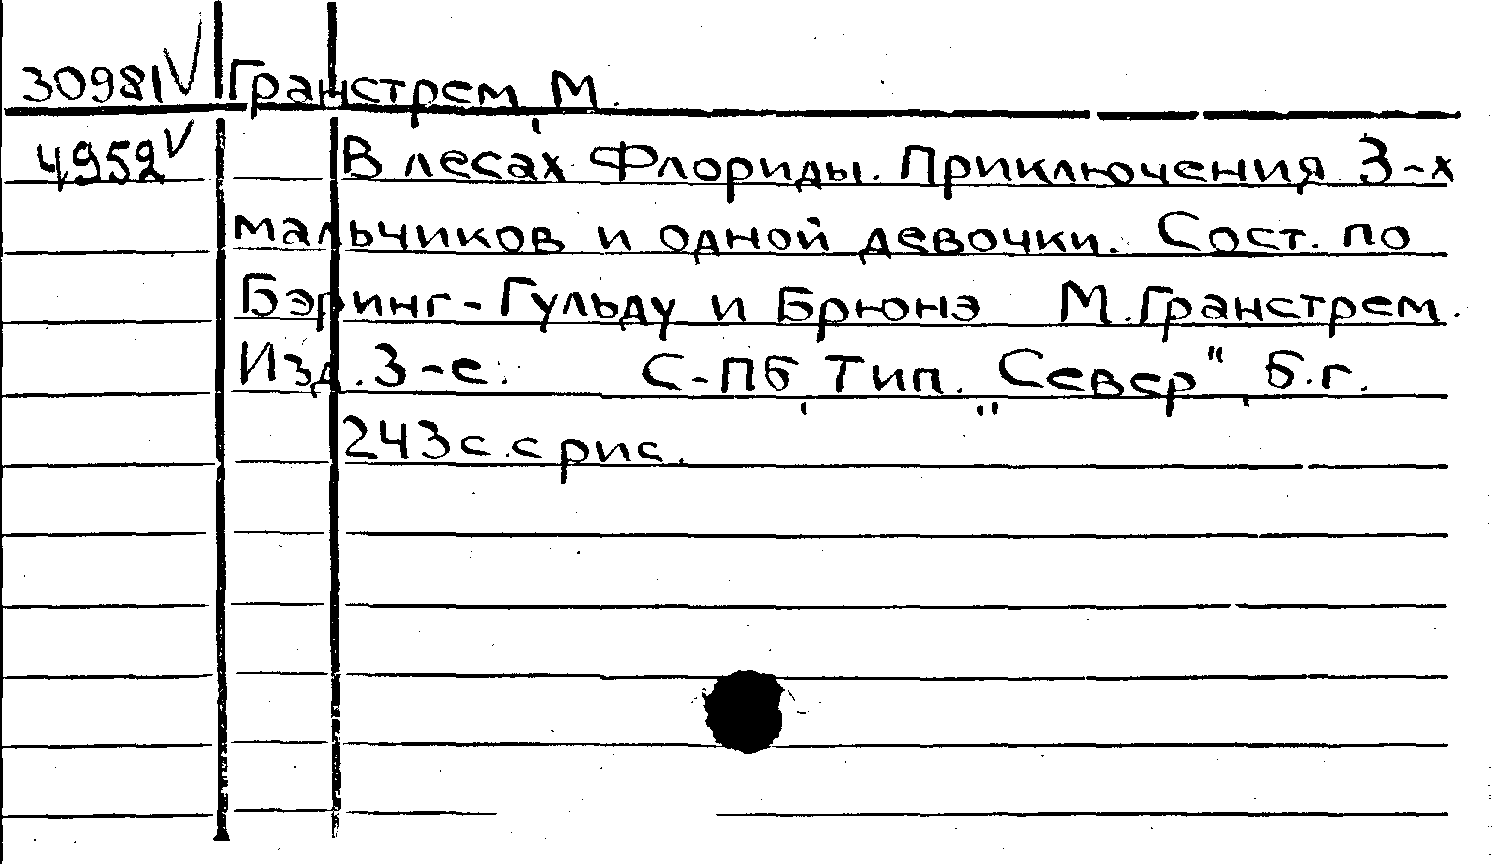 30981 V Гранстрем, М.
4952 V В лесах Флориды. Приключения 3-х
мальчиков и одной девочки. Сост. по
Бэринг-Гульду и Брюнэ М. Гранстрем.
Изд. 3-е. С-Пб, Тип. „Север", б.г.
243 с. с рис.